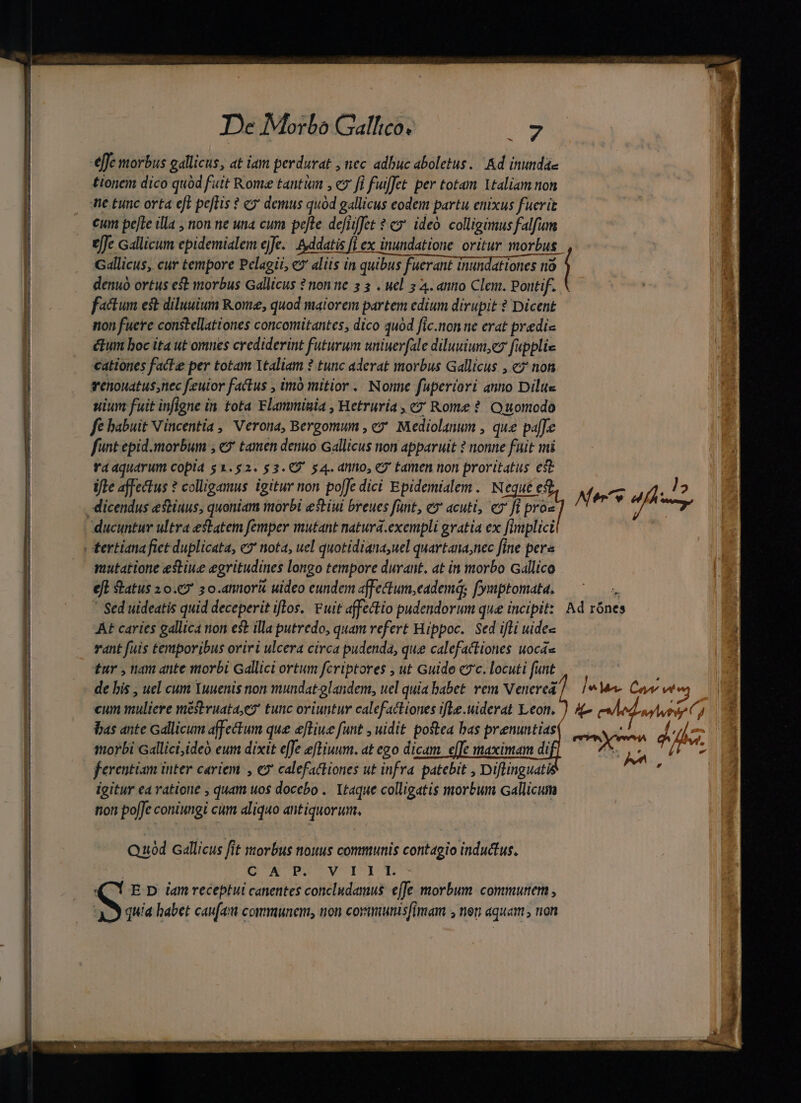 De Morbo Gallico. 7
eſſe morbus gallicus, at iam perdurat, nec adhuc aboletus. Ad inunda=
tionem dico quòd fuit Rome tantùm, & ſi fuiſſet per totam Italiam non
ne tunc orta eſt peſtis? & demus quòd gallicus eodem partu enixus fuerit
cum peſte illa, non ne una cum peſte deſiiſſet? & ideò colligimus falſum
eſſe Gallicum epidemialem eſſe. Addatis ſi ex inundatione oritur morbus
Gallicus, cur tempore Pelagii, & aliis in quibus fuerant inundationes nõ
denuò ortus eſt morbus Gallicus? non ne 33. uel 34. anno Clem. Pontif.
factum eſt diluuium Rome, quod maiorem partem edium dirupit? Dicent
non fuere conſtellationes concomitantes, dico quòd ſic. non ne erat prædi=
ctum hoc ita ut omnes crediderint futurum uniuerſale diluuium, & ſuppli=
cationes factæ per totam Italiam? tunc aderat morbus Gallicus, & non
renouatus, nec ſæuior factus, imò mitior. Nonne ſuperiori anno Dilu=
uium fuit inſigne in tota Flamminia, Hetruria, & Rome? Quomodo
ſe habuit Vincentia, Verona, Bergomum, & Mediolanum, quæ paſſæ
ſunt epid. morbum, & tamen denuo Gallicus non apparuit? nonne fuit mi
ra aquarum copia 51. 52. 53. & 54. anno, & tamen non proritatus eſt
iſte affectus? colligamus igitur non poſſe dici Epidemialem. Neque eſt,
dicendus æſtiuus, quoniam morbi æſtiui breues ſunt, & acuti, & ſi pro=
ducuntur ultra æſtatem ſemper mutant naturã. exempli gratia ex ſimplici
tertiana fiet duplicata, & nota, uel quotidiana, uel quartana, nec ſine per=
mutatione æſtiuæ ægritudines longo tempore durant. at in morbo Gallico
eſt ſtatus 20. & 30. annorũ uideo eundem affectum, eademq; ſymptomata.
Sed uideatis quid deceperit iſtos. Fuit affectio pudendorum quæ incipit: Ad rónes
At caries gallica non eſt illa putredo, quam refert Hippoc. Sed iſti uide=
rant ſuis temporibus oriri ulcera circa pudenda, quæ calefactiones uocã=
tur, nam ante morbi Gallici ortum ſcriptores, ut Guido &c. locuti ſunt
de his, uel cum Iuuenis non mundat glandem, uel quia habet rem Venereã
cum muliere mẽſtruata, & tunc oriuntur calefactiones iſtæ. uiderat Leon.
has ante Gallicum affectum quæ æſtiuæ ſunt, uidit poſtea has prænuntias
morbi Gallici, ideò eum dixit eſſe æſtiuum. at ego dicam eſſe maximam dif
ferentiam inter cariem, & calefactiones ut infra patebit, Diſtinguatis
igitur ea ratione, quam uos docebo. Itaque colligatis morbum Gallicum
non poſſe coniungi cum aliquo antiquorum.
Quòd Gallicus ſit morbus nouus communis contagio inductus.
CAP. VIII.
SED iam receptui canentes concludamus eſſe morbum communem,
quia habet cauſam communem, non communiſſimam, non aquam, non